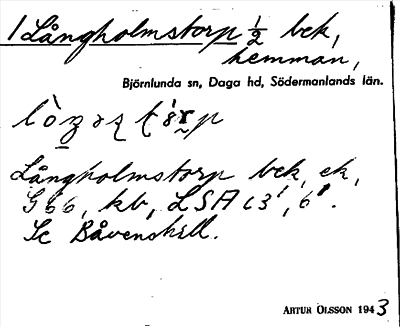 1 Långholmstorp ½ bek,
hemman,
Björnlunda sn, Daga hd, Södermanlands län.
Långholmstorp bek, ek,
G 66, kb, LSA C3
Se Båvenshäll.
ARTUR OLSSON 1943